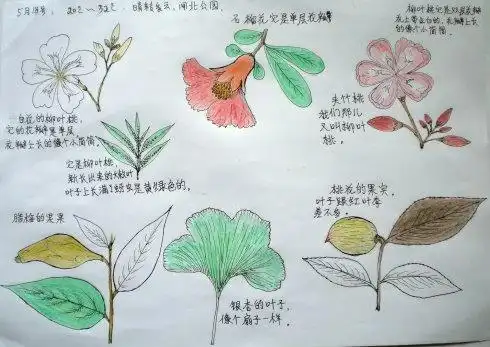 5月18号，20℃～32℃，晴转多云，闸北公园。
石榴花它是单层花瓣
柳叶桃它是双层花瓣
花上带点白的，花瓣上长
的像个小筒筒。
白花的柳叶桃，
它的花瓣是单层
花瓣上长的像个小筒筒。
夹竹桃
我们那儿
又叫柳叶
桃。
它是柳叶桃
新长出来的大枝叶
叶子上长满了蚜虫是黄绿色的。
桃花的果实，
叶子跟红叶李
差不多。
腊梅的果实
银杏的叶子，
像个扇子一样。